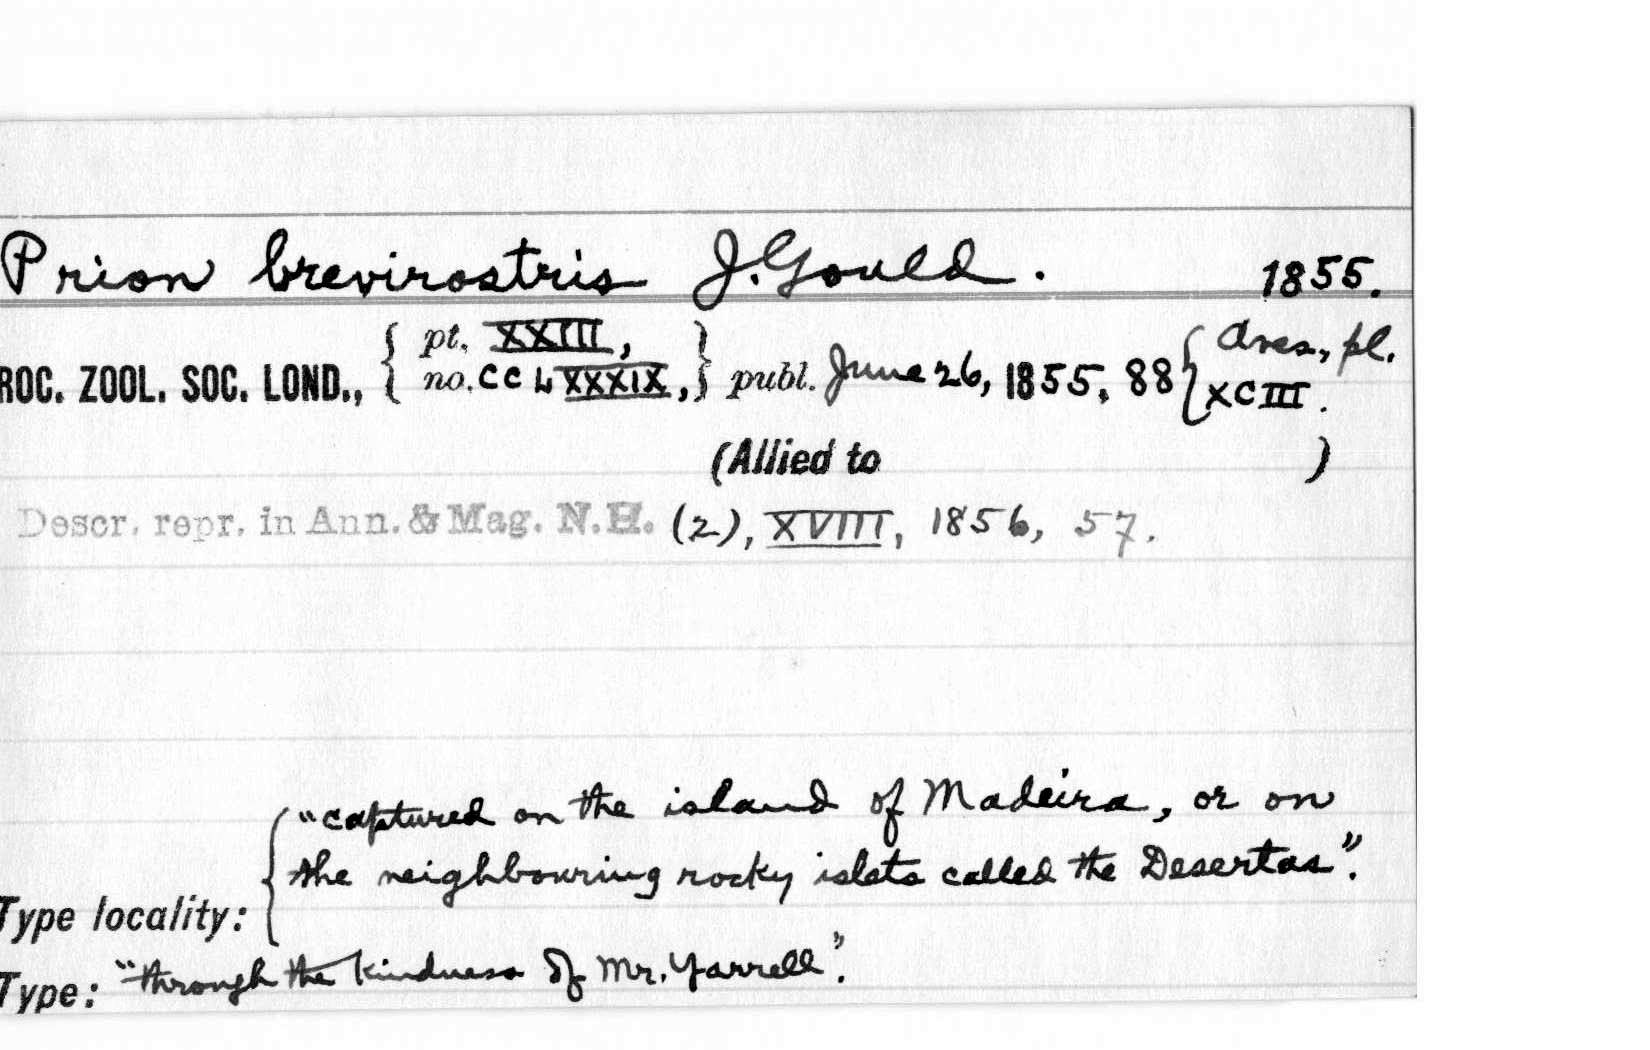 Prion brevirostris J. Gould. 1855.
ROC. ZOOL. SOC. LOND., { pt. XXIII, no. CCLXXXIX, } publ. June 26, 1855, 88 { Aves, pl. XCIII.
(Allied to )
Descr. repr. in Ann. & Mag. N.H. (2), XVIII, 1856, 57.
"captured on the island of Madeira, or on
the neighbouring rocky islets called the Desertas".
Type locality:
Type: "through the kindness of Mr. Yarrell".